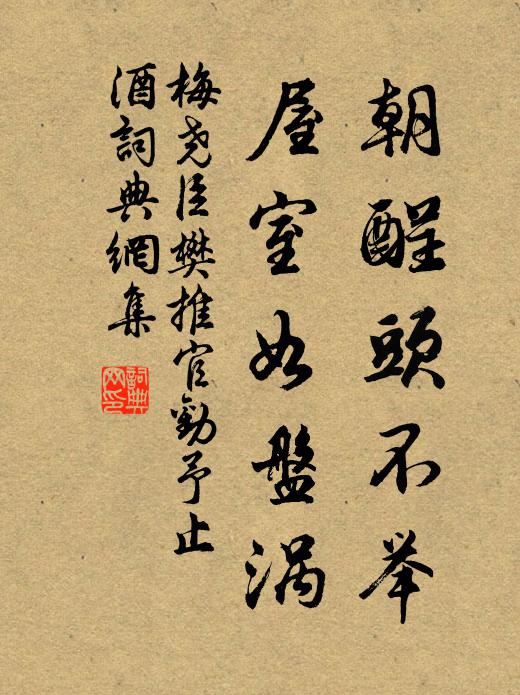 朝醒頭不举
屋室如盤涡
梅尧臣樊推官勸予止
酒詞典網集
詞典网印